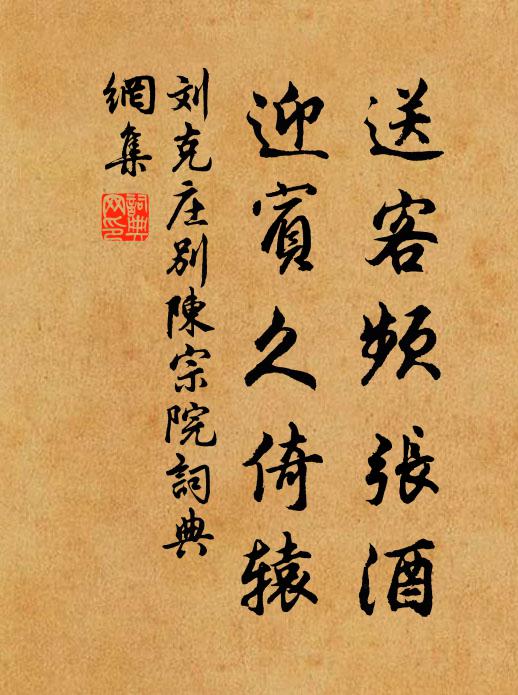 送客频張酒
迎賓久倚辕
刘克庄别陳宗院詞典
網集
詞典網印